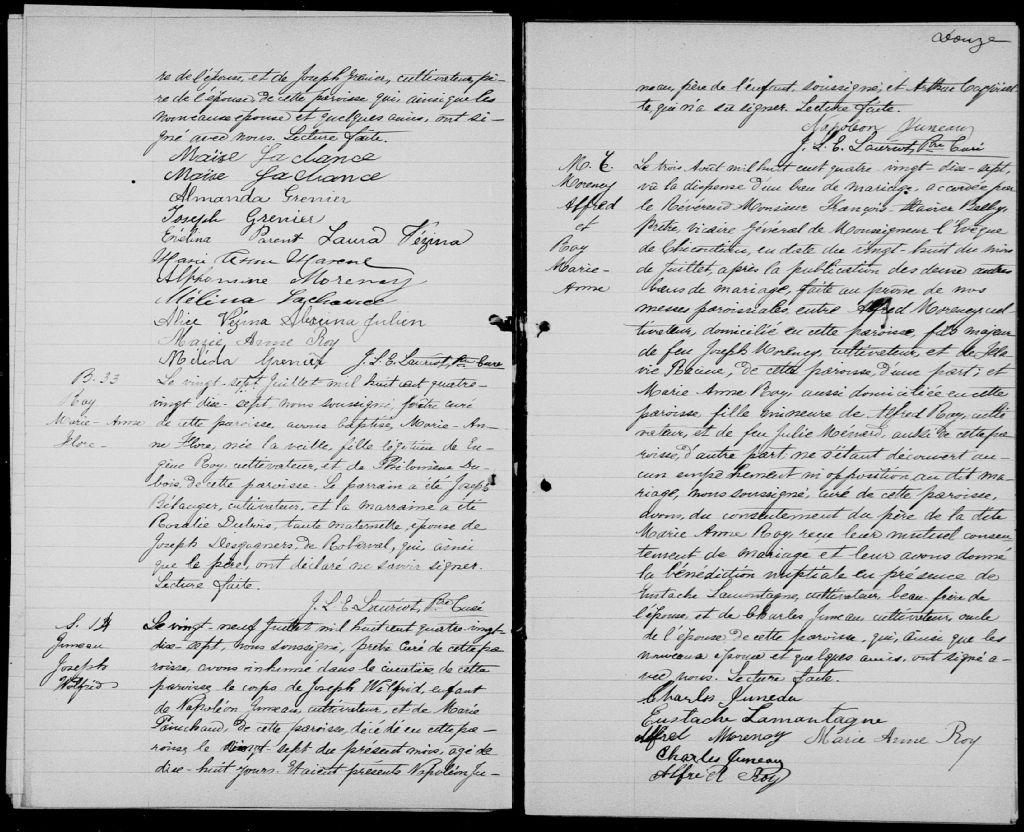 re de l'épouse, et de Joseph Grenier, cultivateur, pè-
re de l'épouse, de cette paroisse qui, ainsi que les
nouveaux époux et quelques amis, ont si-
gné avec nous. Lecture faite.
Maïse Lachance
Maïse Lachance
Almanda Grenier
Joseph Grenier
Parent Laura Vézina
Marie Anne
Alphonsine Morency
Mélina Lachance
Alice Vézina Alexina Julien
Marie Anne Roy
Mélida Grenier J. L. E. Lauriot, Ptre Curé
B. 33
Roy
Marie-Anne
Flore
Le vingt-sept Juillet mil huit cent quatre-
vingt dix-sept, nous soussigné, prêtre curé
de cette paroisse, avons baptisé, Marie-An-
ne Flore, née la veille, fille légitime de Eu-
gène Roy, cultivateur, et de Philomène Du-
bois, de cette paroisse. Le parrain a été Joseph
Bélanger, cultivateur, et la marraine a été
Rosalie Dubois, tante maternelle, épouse de
Joseph de Roberval, qui, ainsi
que le père, ont déclaré ne savoir signer.
Lecture faite.
J. L. E. Lauriot, Ptre Curé
S. 14
Juneau
Joseph
Wilfrid
Le vingt-neuf Juillet mil huit cent quatre-vingt-
dix-sept, nous soussigné, prêtre curé de cette pa-
roisse, avons inhumé dans le cimetière de cette
paroisse, le corps de Joseph Wilfrid, enfant
de Napoléon Juneau, cultivateur, et de Marie
de cette paroisse, décédé en cette pa-
roisse, le vingt-sept du présent mois, agé de
dix-huit jours. Etaient présents Napoléon Ju-
Douze
neau, père de l'enfant, soussigné, et Arthur
te qui n'a su signer. Lecture faite.
Napoléon Juneau
J. L. E. Lauriot, Ptre Curé
M. 7.
Morency
Alfred
et
Roy
Marie-
Anne
Le trois Août mil huit cent quatre-vingt-dix-sept,
vu la dispense d'un ban de mariage, accordée par
le Révérend Monsieur François-Xavier Belley,
Prêtre, Vicaire Général de Monseigneur l'Evêque
de Chicoutimi, en date du vingt-huit du mois
de Juillet, après la publication des deux autres
bans de mariage, faite au prône de nos
messes paroissiales, entre Alfred Morency, cul-
tivateur, domicilié en cette paroisse, fils majeur
de feu Joseph Morency, cultivateur, et de
de cette paroisse, d'une part; et
Marie Anne Roy, aussi domiciliée en cette
paroisse, fille mineure de Alfred Roy, culti-
vateur, et de feu Julie Ménard, aussi de cette pa-
roisse, d'autre part, ne s'étant découvert au-
cun empêchement ni opposition au dit ma-
riage, nous soussigné, curé de cette paroisse,
avons, du consentement du père de la dite
Marie Anne Roy, reçu leur mutuel consen-
tement de mariage et leur avons donné
la bénédiction nuptiale en présence de
Eustache Lamontagne, cultivateur, beau-frère de
l'épouse, et de Charles Juneau, cultivateur, oncle
de l'épouse de cette paroisse, qui, ainsi que les
nouveaux époux et quelques amis, ont signé a-
vec nous. Lecture faite.
Charles Juneau
Eustache Lamontagne
Alfred Morency Marie Anne Roy
Charles Juneau
Alfred Roy